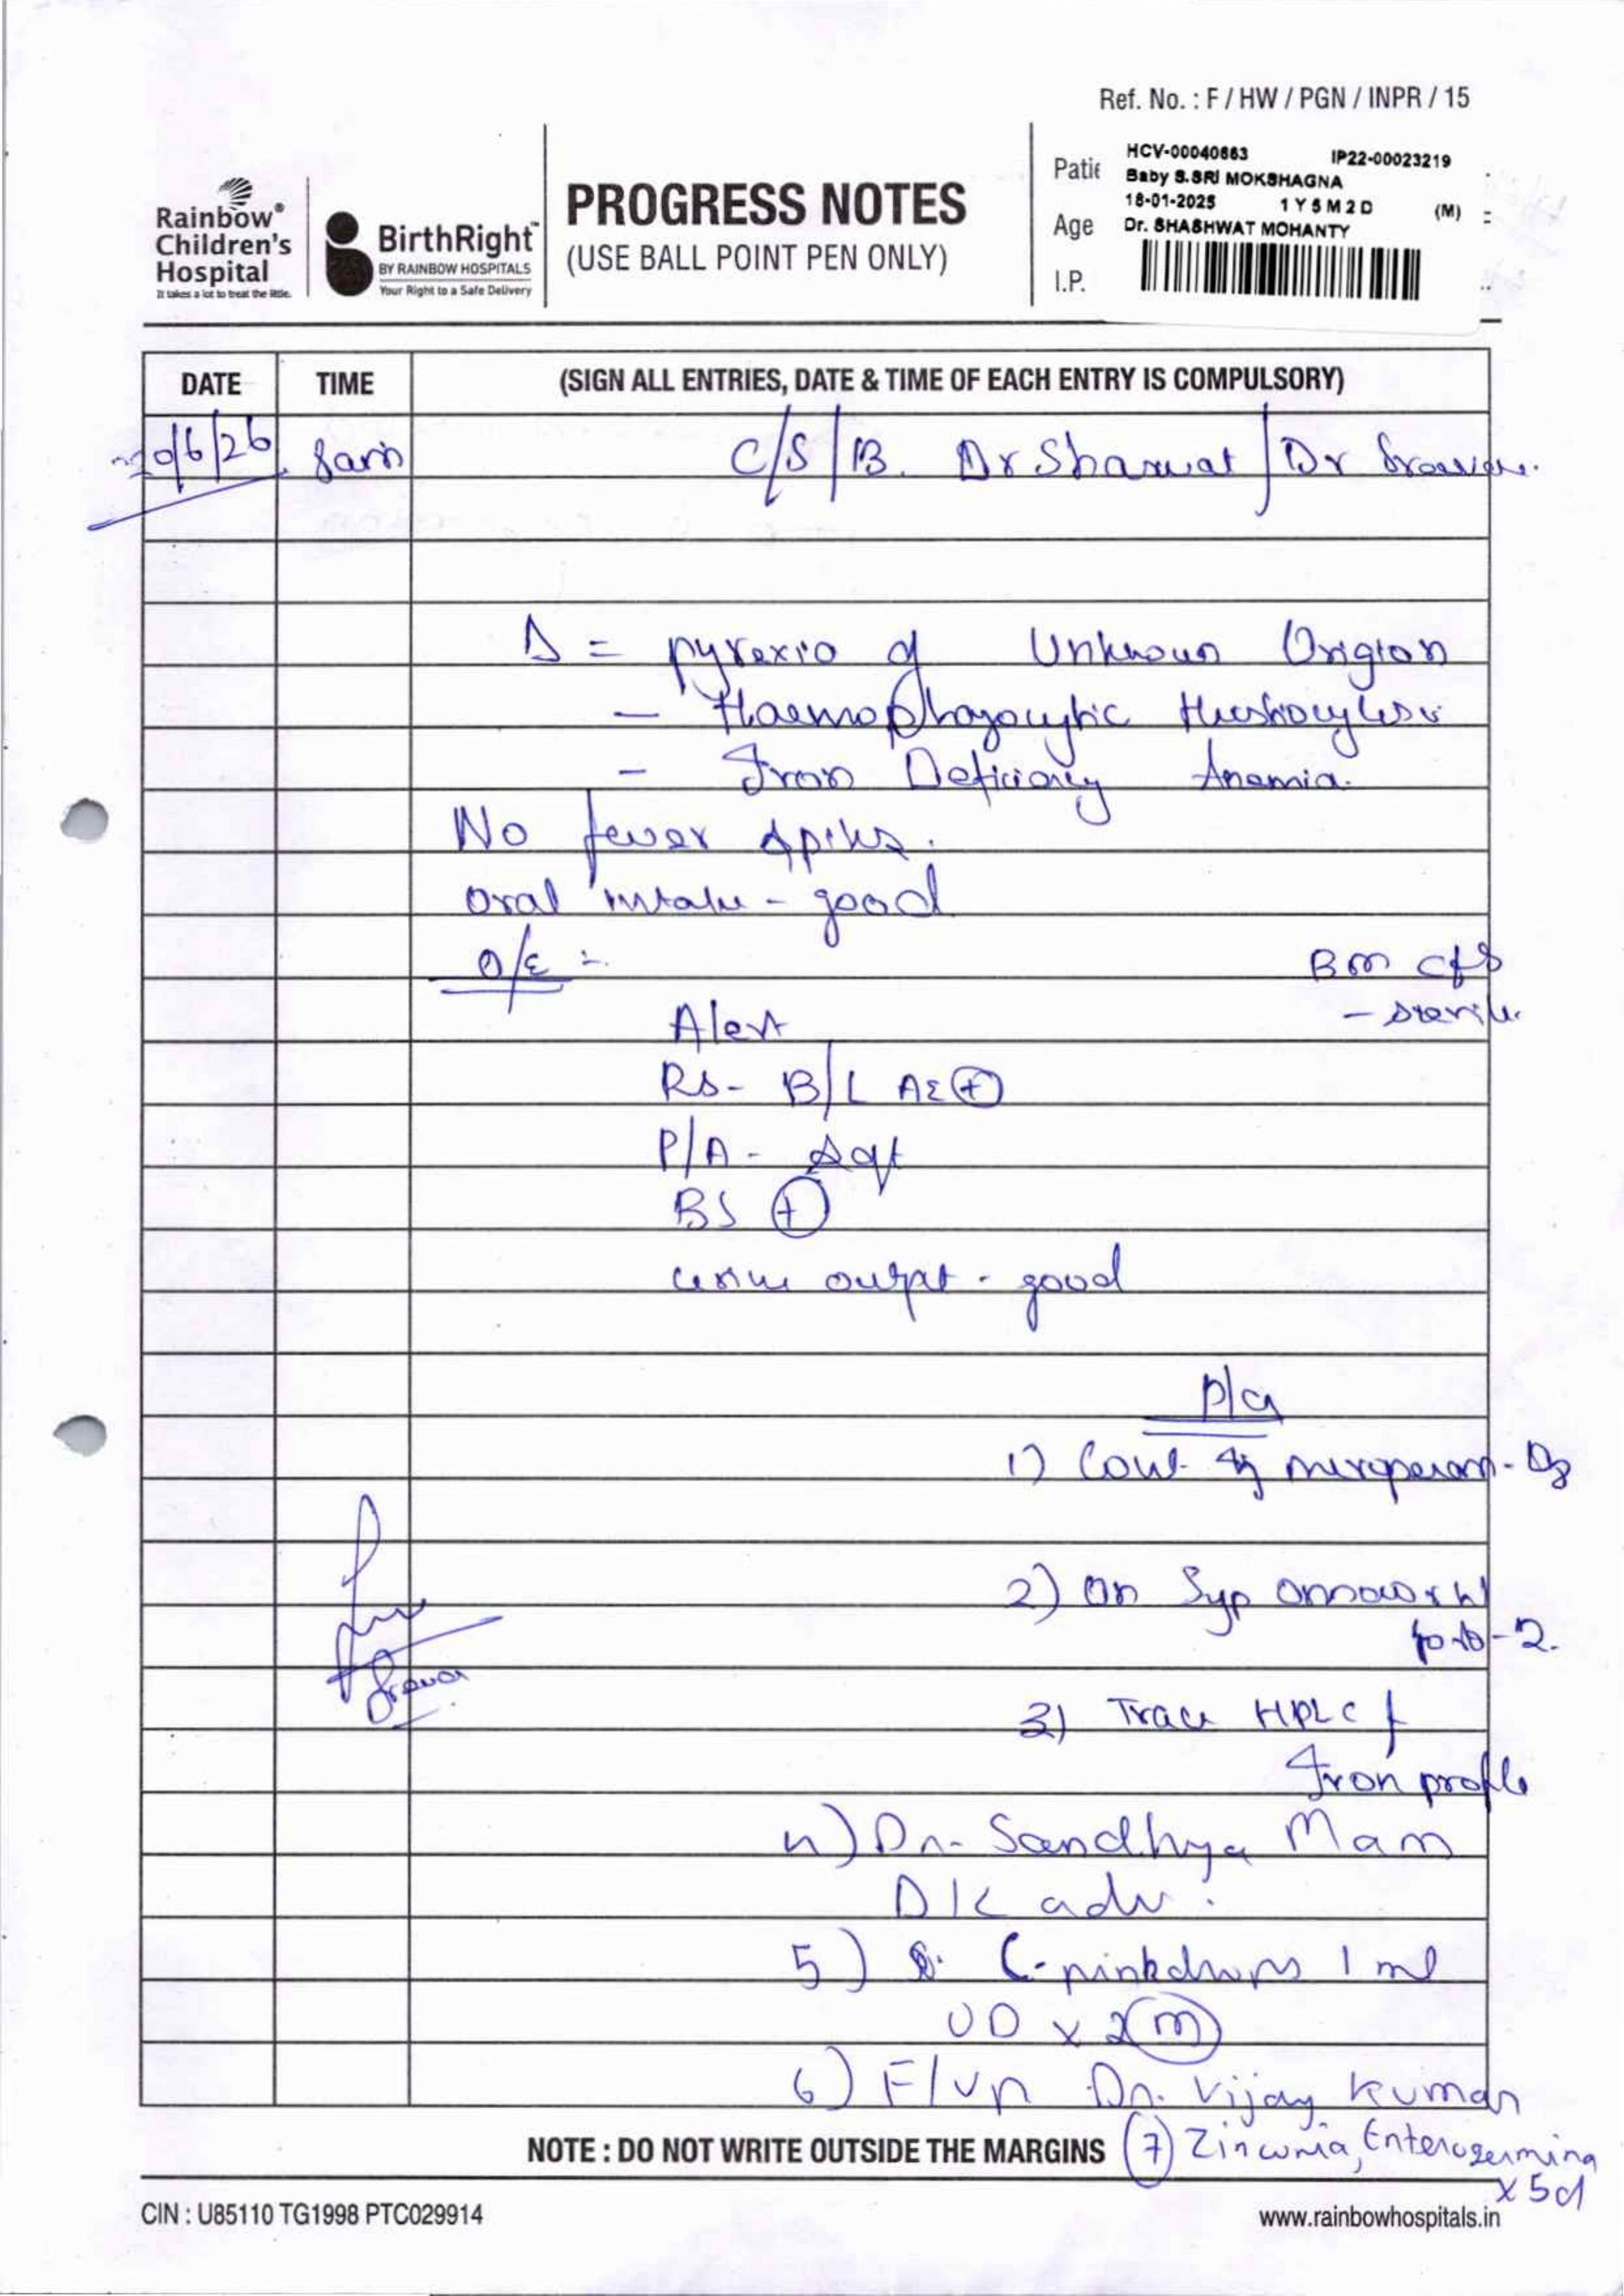 Ref. No. : F / HW / PGN / INPR / 15
Rainbow®
Children's
Hospital
It takes a lot to treat the little.
BirthRight™
BY RAINBOW HOSPITALS
Your Right to a Safe Delivery
PROGRESS NOTES
(USE BALL POINT PEN ONLY)
HCV-00040863 IP22-00023219
Baby S.SRI MOKSHAGNA
18-01-2025 1Y5M2D (M)
Dr. SHASHWAT MOHANTY
Age
I.P.
DATE TIME (SIGN ALL ENTRIES, DATE & TIME OF EACH ENTRY IS COMPULSORY)
20/6/26 8am C/S/B. Dr Sharwat / Dr
Δ = pyrexia of Unknown Origion
- Haemophagocytic
- Iron Deficiency Anemia.
No fever spikes.
oral intake - good
O/E :-
BM c/s
- sterile.
Alert
RS- B/L AE (+)
P/A - soft
BS (+)
urine output - good
1) Cont. meropenem - D8
2) On Syp
3) Trace HPLC &
Iron profile
4) Dr. Sandhya Mam
D/C adv.
5) C-pinkdrops 1 ml
OD x 2(m)
6) F/up Dr. Vijay Kumar
NOTE : DO NOT WRITE OUTSIDE THE MARGINS
(7) Zinconia, Enterogermina
x 5d
CIN : U85110 TG1998 PTC029914
www.rainbowhospitals.in